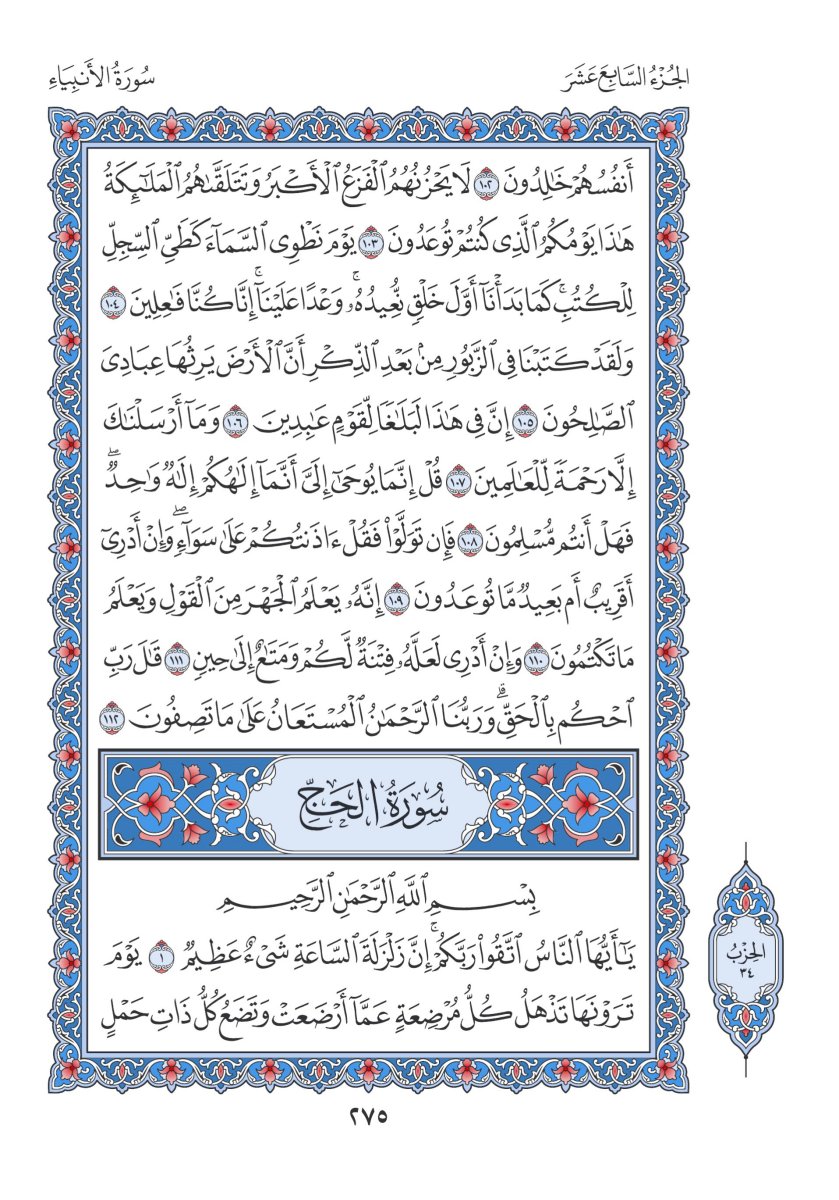 الجُزْءُ السَّابِعَ عَشَرَ
سُورَةُ الأَنبِيَاءِ
أَنفُسُهُمْ خَٰلِدُونَ ١٠٢ لَا يَحْزُنُهُمُ ٱلْفَزَعُ ٱلْأَكْبَرُ وَتَتَلَقَّىٰهُمُ ٱلْمَلَٰٓئِكَةُ
هَٰذَا يَوْمُكُمُ ٱلَّذِى كُنتُمْ تُوعَدُونَ ١٠٣ يَوْمَ نَطْوِى ٱلسَّمَآءَ كَطَىِّ ٱلسِّجِلِّ
لِلْكُتُبِ ۚ كَمَا بَدَأْنَآ أَوَّلَ خَلْقٍ نُّعِيدُهُۥ ۚ وَعْدًا عَلَيْنَآ ۚ إِنَّا كُنَّا فَٰعِلِينَ ١٠٤
وَلَقَدْ كَتَبْنَا فِى ٱلزَّبُورِ مِنۢ بَعْدِ ٱلذِّكْرِ أَنَّ ٱلْأَرْضَ يَرِثُهَا عِبَادِىَ
ٱلصَّٰلِحُونَ ١٠٥ إِنَّ فِى هَٰذَا لَبَلَٰغًا لِّقَوْمٍ عَٰبِدِينَ ١٠٦ وَمَآ أَرْسَلْنَٰكَ
إِلَّا رَحْمَةً لِّلْعَٰلَمِينَ ١٠٧ قُلْ إِنَّمَا يُوحَىٰٓ إِلَىَّ أَنَّمَآ إِلَٰهُكُمْ إِلَٰهٌ وَٰحِدٌ ۖ
فَهَلْ أَنتُم مُّسْلِمُونَ ١٠٨ فَإِن تَوَلَّوْا۟ فَقُلْ ءَاذَنتُكُمْ عَلَىٰ سَوَآءٍ ۖ وَإِنْ أَدْرِىٓ
أَقَرِيبٌ أَم بَعِيدٌ مَّا تُوعَدُونَ ١٠٩ إِنَّهُۥ يَعْلَمُ ٱلْجَهْرَ مِنَ ٱلْقَوْلِ وَيَعْلَمُ
مَا تَكْتُمُونَ ١١٠ وَإِنْ أَدْرِى لَعَلَّهُۥ فِتْنَةٌ لَّكُمْ وَمَتَٰعٌ إِلَىٰ حِينٍ ١١١ قَٰلَ رَبِّ
ٱحْكُم بِٱلْحَقِّ ۗ وَرَبُّنَا ٱلرَّحْمَٰنُ ٱلْمُسْتَعَانُ عَلَىٰ مَا تَصِفُونَ ١١٢
سُورَةُ الحَجِّ
بِسْمِ ٱللَّهِ ٱلرَّحْمَٰنِ ٱلرَّحِيمِ
يَٰٓأَيُّهَا ٱلنَّاسُ ٱتَّقُوا۟ رَبَّكُمْ ۚ إِنَّ زَلْزَلَةَ ٱلسَّاعَةِ شَىْءٌ عَظِيمٌ ١ يَوْمَ
تَرَوْنَهَا تَذْهَلُ كُلُّ مُرْضِعَةٍ عَمَّآ أَرْضَعَتْ وَتَضَعُ كُلُّ ذَاتِ حَمْلٍ
الحِزْبُ
٣٤
٢٧٥